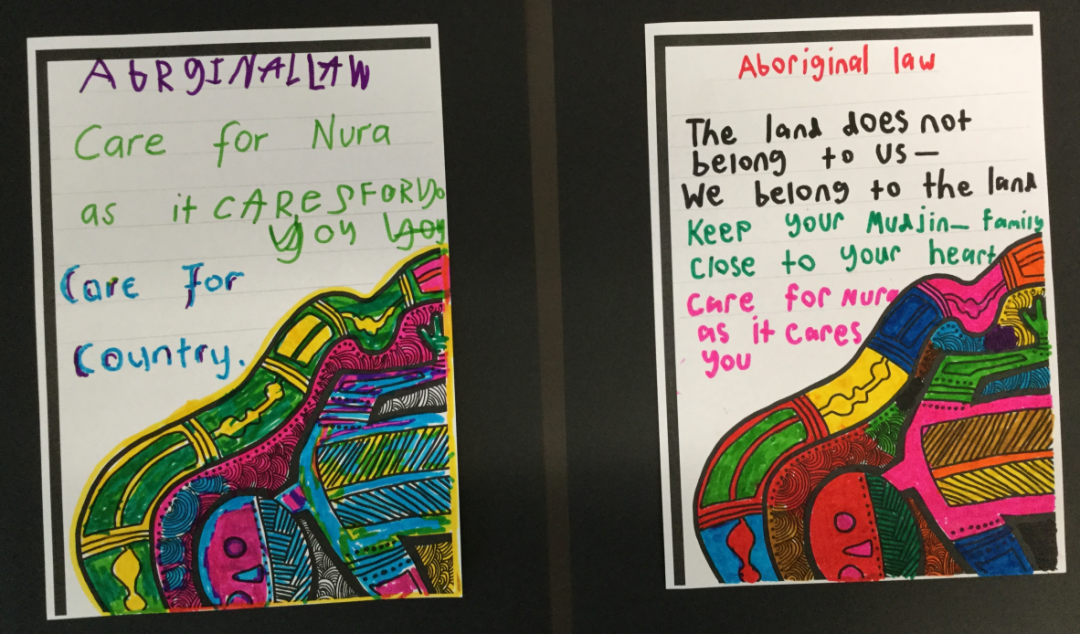 AbRgINALLAW
Care for Nura
as it CARES FOR YO
you
Care For
Country.
Aboriginal law
The land does not
belong to us—
We belong to the land
Keep your Mudjin— family
close to your heart
Care for Nura
as it cares
you